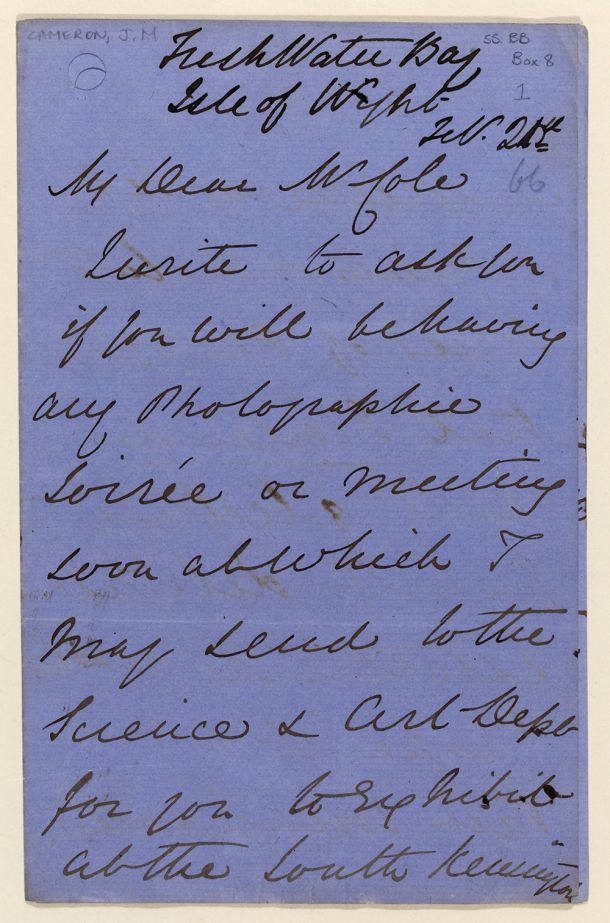 CAMERON, J. M
SS. BB
Box 8
1
FreshWater Bay
Isle of Wight
Feb. 21st
66
My Dear Mr Cole
I write to ask you
if you will be having
any Photographic
Soirée or meeting
soon at which I
may send to the
Science & Art Dept
for you to Exhibit
at the South Kensington